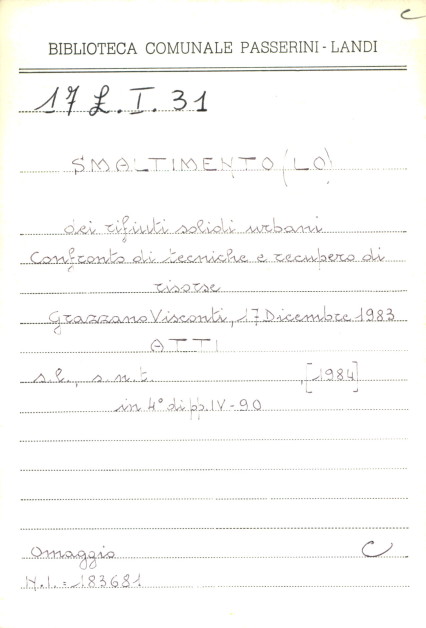 C
BIBLIOTECA COMUNALE PASSERINI - LANDI
17 L. I. 31
SMALTIMENTO (LO)
dei rifiuti solidi urbani
Confronto di tecniche e recupero di
risorse
Grazzano Visconti, 17 Dicembre 1983
ATTI
s.l., s.n.t , [1984]
in 4° di pp. IV-90
Omaggio C
N.I. = 183681